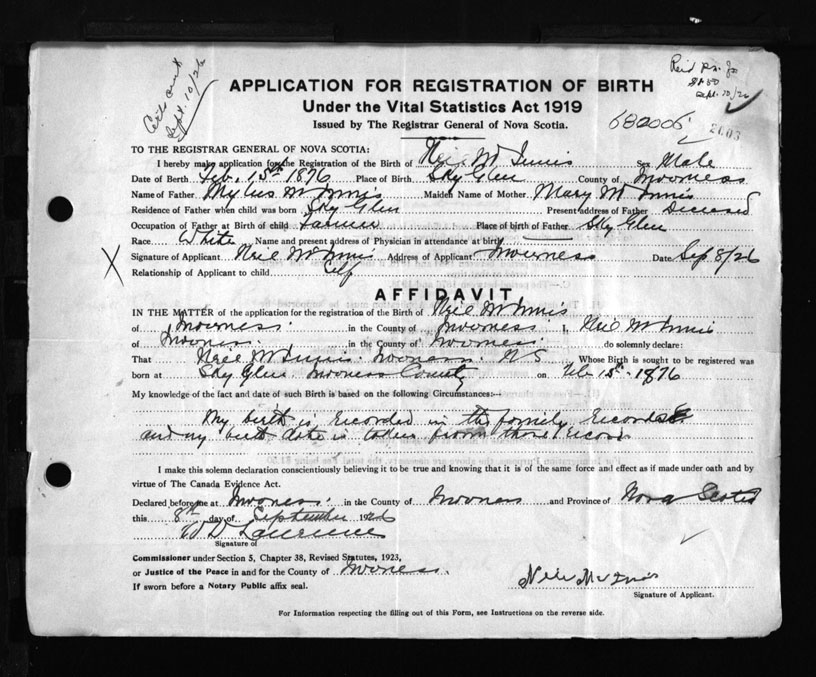 Cert out
Sept. 10/26
Sept. 10/26
APPLICATION FOR REGISTRATION OF BIRTH
Under the Vital Statistics Act 1919
Issued by The Registrar General of Nova Scotia.
TO THE REGISTRAR GENERAL OF NOVA SCOTIA:
I hereby make application for the Registration of the Birth of Neil McInnis Sex Male
Date of Birth Feb. 15th 1876 Place of Birth Sky Glen County of Inverness
Name of Father McInnis Maiden Name of Mother Mary McInnis
Residence of Father when child was born Sky Glen Present address of Father Deceased
Occupation of Father at Birth of child Farmer Place of birth of Father Sky Glen
Race White Name and present address of Physician in attendance at birth
X Signature of Applicant Neil McInnis Address of Applicant Inverness Date Sep 8/26
Relationship of Applicant to child Self
AFFIDAVIT
IN THE MATTER of the application for the registration of Birth of Neil McInnis
of Inverness in the County of Inverness I, Neil McInnis
of Inverness in the County of Inverness do solemnly declare:
That Neil McInnis Inverness N S Whose Birth is sought to be registered was
born at Sky Glen Inverness County on Feb 15th 1876
My knowledge of the fact and date of such Birth is based on the following Circumstances:—
My birth is recorded in the family records
and my birth date is taken from those records
I make this solemn declaration conscientiously believing it to be true and knowing that it is of the same force and effect as if made under oath and by
virtue of The Canada Evidence Act.
Declared before me at Inverness in the County of Inverness and Province of Nova Scotia
this 8th day of September 1926
W D Lawrence
Signature of
Commissioner under Section 5, Chapter 38, Revised Statutes, 1923,
or Justice of the Peace in and for the County of Inverness.
If sworn before a Notary Public affix seal.
Neil McInnis
Signature of Applicant.
For Information respecting the filling out of this Form, see Instructions on the reverse side.